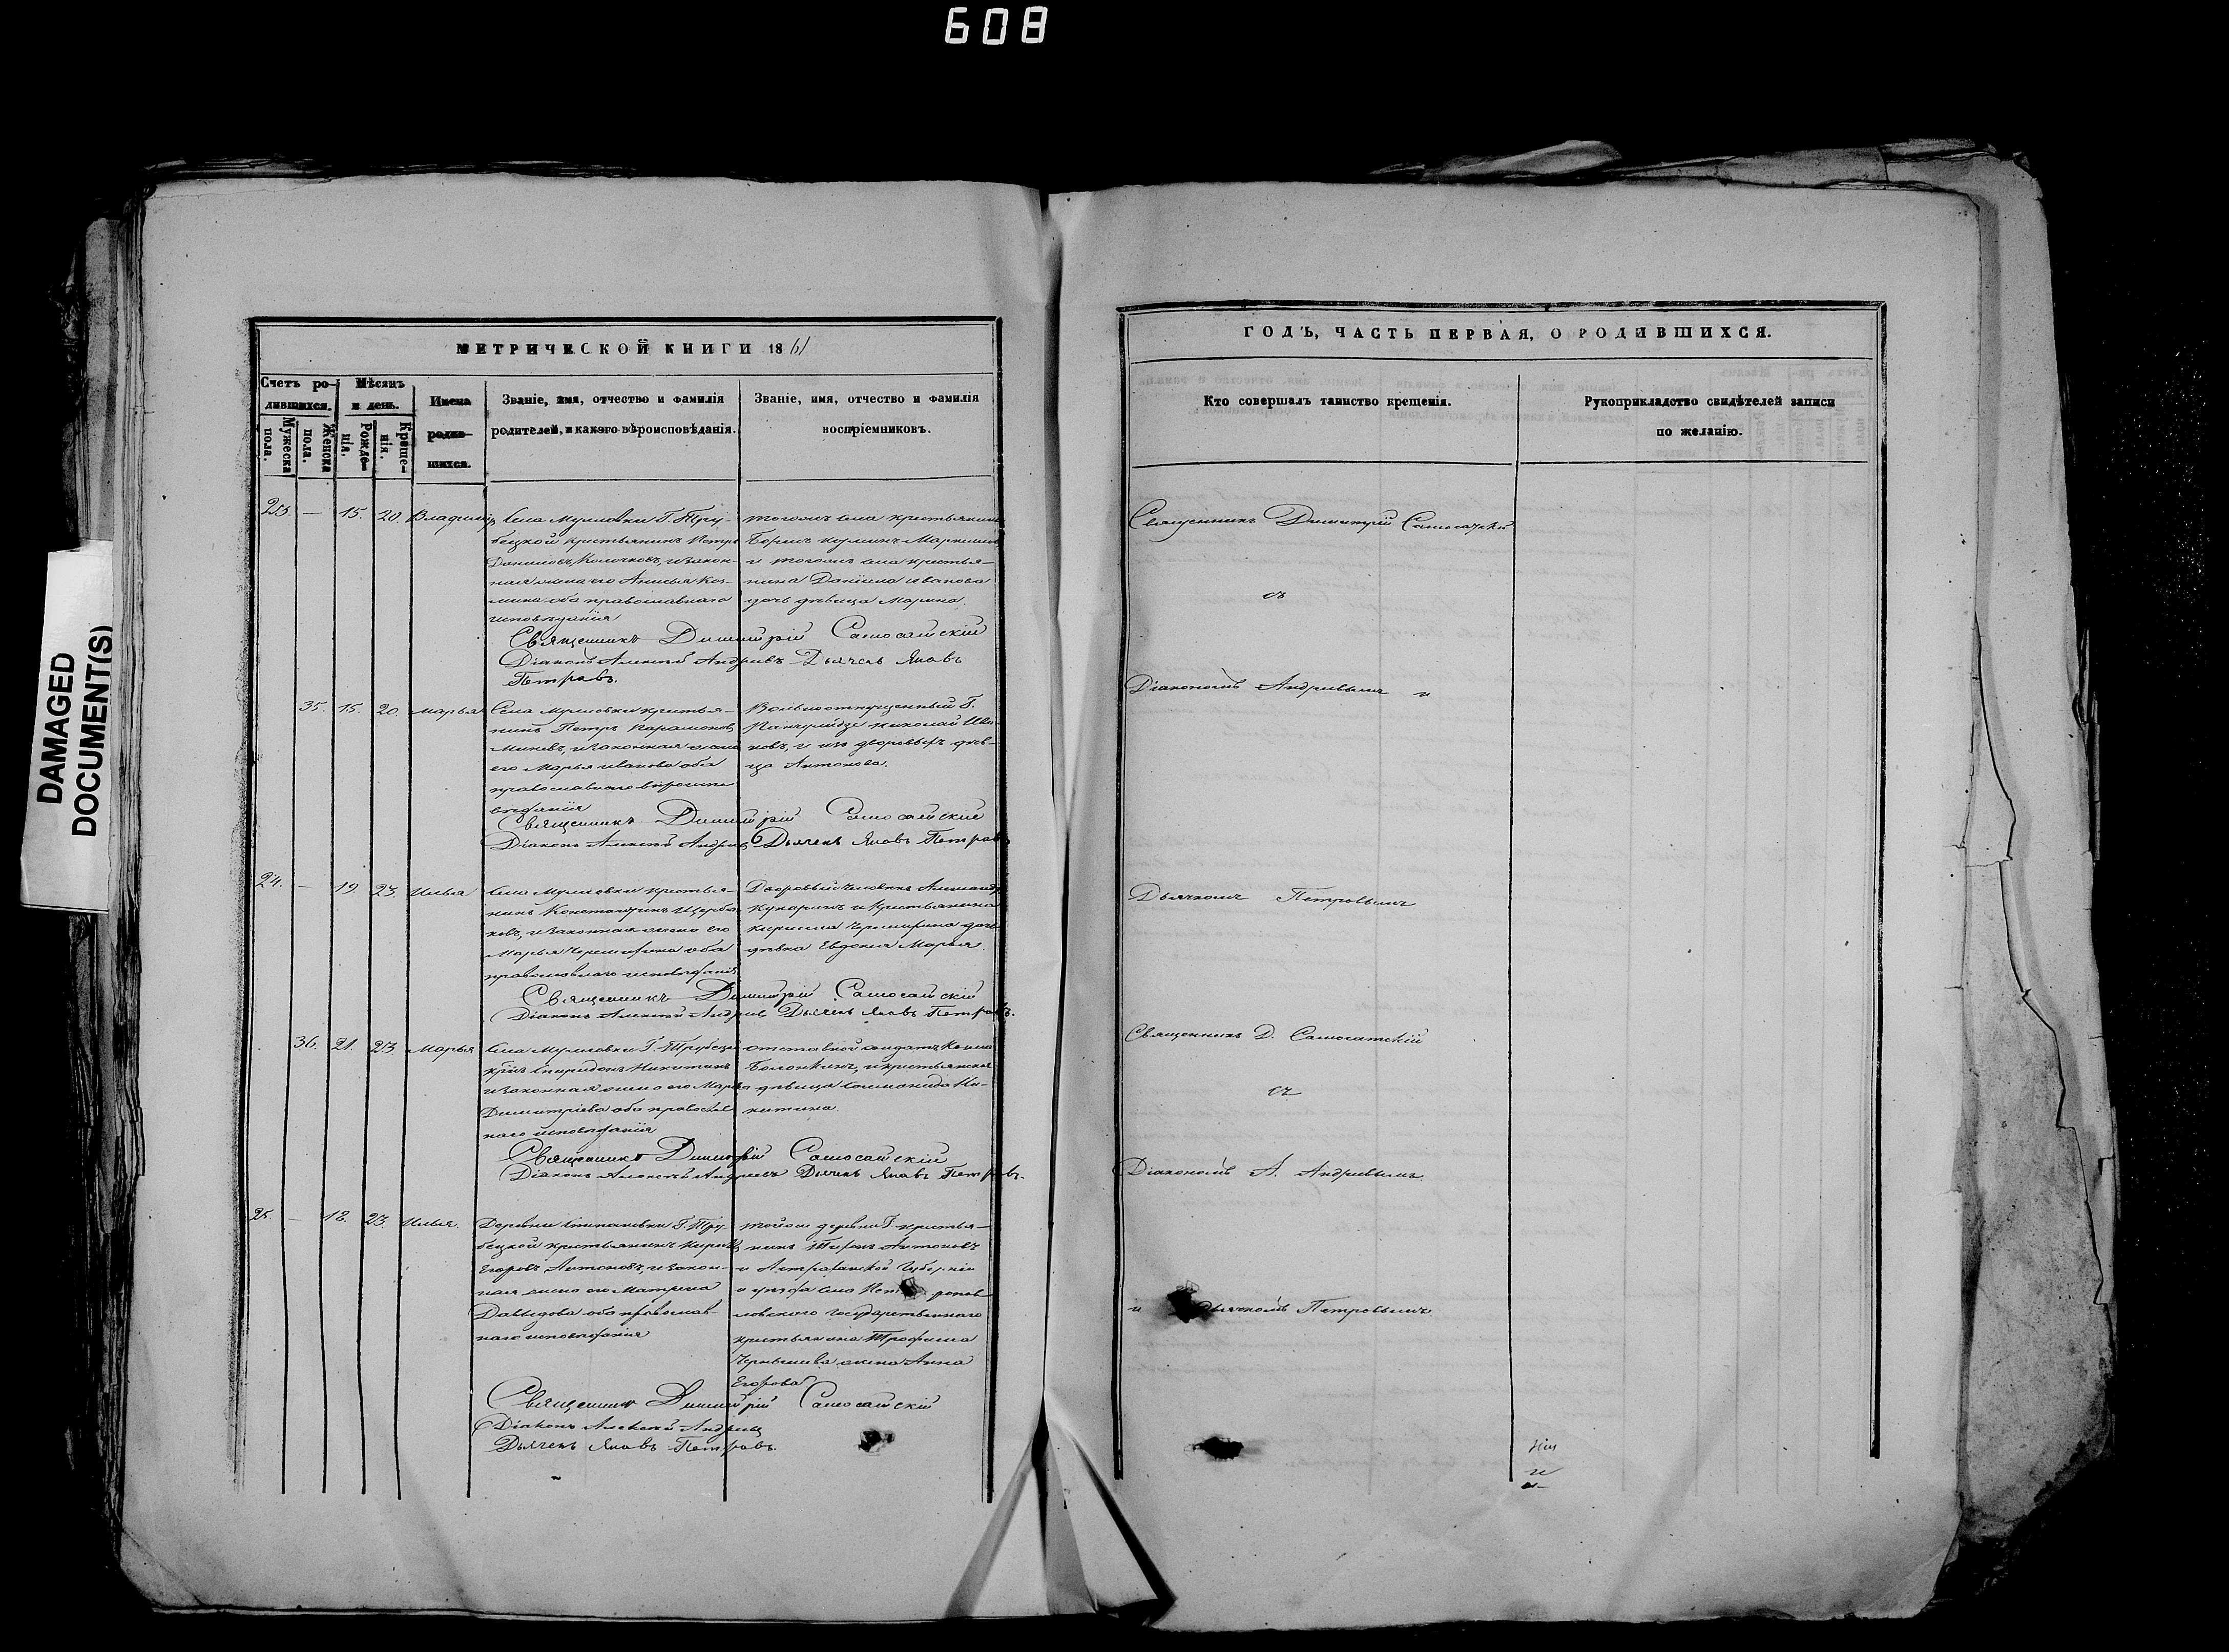 608
DAMAGED
DOCUMENT(S)
МЕТРИЧЕСКОЙ КНИГИ 1861
Счетъ ро-
дившихся.
Мужеска
пола.
Женска
пола.
Мѣсяцъ
и день.
Рожде-
нія.
Креще-
нія.
Имена
родив-
шихся.
Званіе, имя, отчество и фамилія
родителей, и какого вѣроисповѣданія.
Званіе, имя, отчество и фамилія
воспріемниковъ.
23. — 15. 20. Владиміръ
Села Мулловки Г. Тру-
бецкой крестьянинъ Петръ
Даниловъ и закон-
ная жена его Анисья Коз-
мина оба православнаго
исповѣданія
тогожъ села крестьянинъ
Борисъ
и тогожъ села крестья-
нина Даніила Иванова
дочь дѣвица Марина.
Священникъ Димитрій Самосатскій
Діаконъ Алексѣй Андреевъ Дьячекъ Яковъ
Петровъ.
35. 15. 20. Марья
Села Мулловки крестья-
нинъ Петръ
и законная жена
его Марья Иванова оба
православнаго вѣроиспо
вѣданія
Вольноотпущенный Г.
Панчулидзе Николай Ива-
новъ, и изъ дворовыхъ дѣв-
ца Антонова.
Священникъ Димитрій Самосатскій
Діаконъ Алексѣй Андреевъ Дьячекъ Яковъ Петровъ
24. — 19. 23. Илья
Села Мулловки крестья-
нинъ Константинъ Щерба-
ковъ, и законная жена его
Марья оба
православнаго исповѣданія
Дворовый человѣкъ Александръ
и крестьянина
Кирилла дочь
дѣвка Евдокия Марья.
Священникъ Димитрій Самосатскій
Діаконъ Алексѣй Андреевъ Дьячекъ Яковъ Петровъ.
36. 21. 23 Марья
Села Мулловки Г. Трубецкой
Спиридонъ Никитинъ
и законная жена его Марья
Димитріева оба православ
наго исповѣданія
отставной солдатъ
и крестьянская
дѣвица Соломонида Ни-
китина.
Священникъ Димитрій Самосатскій
Діаконъ Алексѣй Андреевъ Дьячекъ Яковъ Петровъ.
25. — 18. 23. Илья.
Деревни Степановки Г. Тру-
бецкой крестьянинъ
Егоровъ Антоновъ, и закон-
ная жена его Матрена
Давыдова оба православ-
наго исповѣданія
тойже деревни Г. крестья-
нинъ Антоновъ
и Астраханской Губерніи
и уѣзда села
государственнаго
крестьянина Трофима
Чернышева жена Анна
Егорова
Священникъ Димитрій Самосатскій
Діаконъ Алексѣй Андреевъ
Дьячекъ Яковъ Петровъ.
ГОДЪ, ЧАСТЬ ПЕРВАЯ, О РОДИВШИХСЯ.
Кто совершалъ таинство крещенія.
Рукоприкладство свидѣтелей записи
по желанію.
Священникъ Димитрій Самосатскій
съ
Діакономъ Андреевымъ и
Дьячкомъ Петровымъ
Священникъ Д. Самосатскій
съ
Діакономъ А. Андреевымъ
и Дьячкомъ Петровымъ